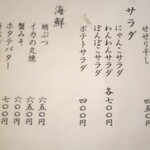 せせり干し 四五〇
サラダ
にゃんこサラダ
わんわんサラダ 各七〇〇
ぽんぽこサラダ
ポテトサラダ 四〇〇
海鮮
鯖ぶつ 六五〇
イカの丸焼 六五〇
蟹みそ 六〇〇
ホタテバター 七〇〇